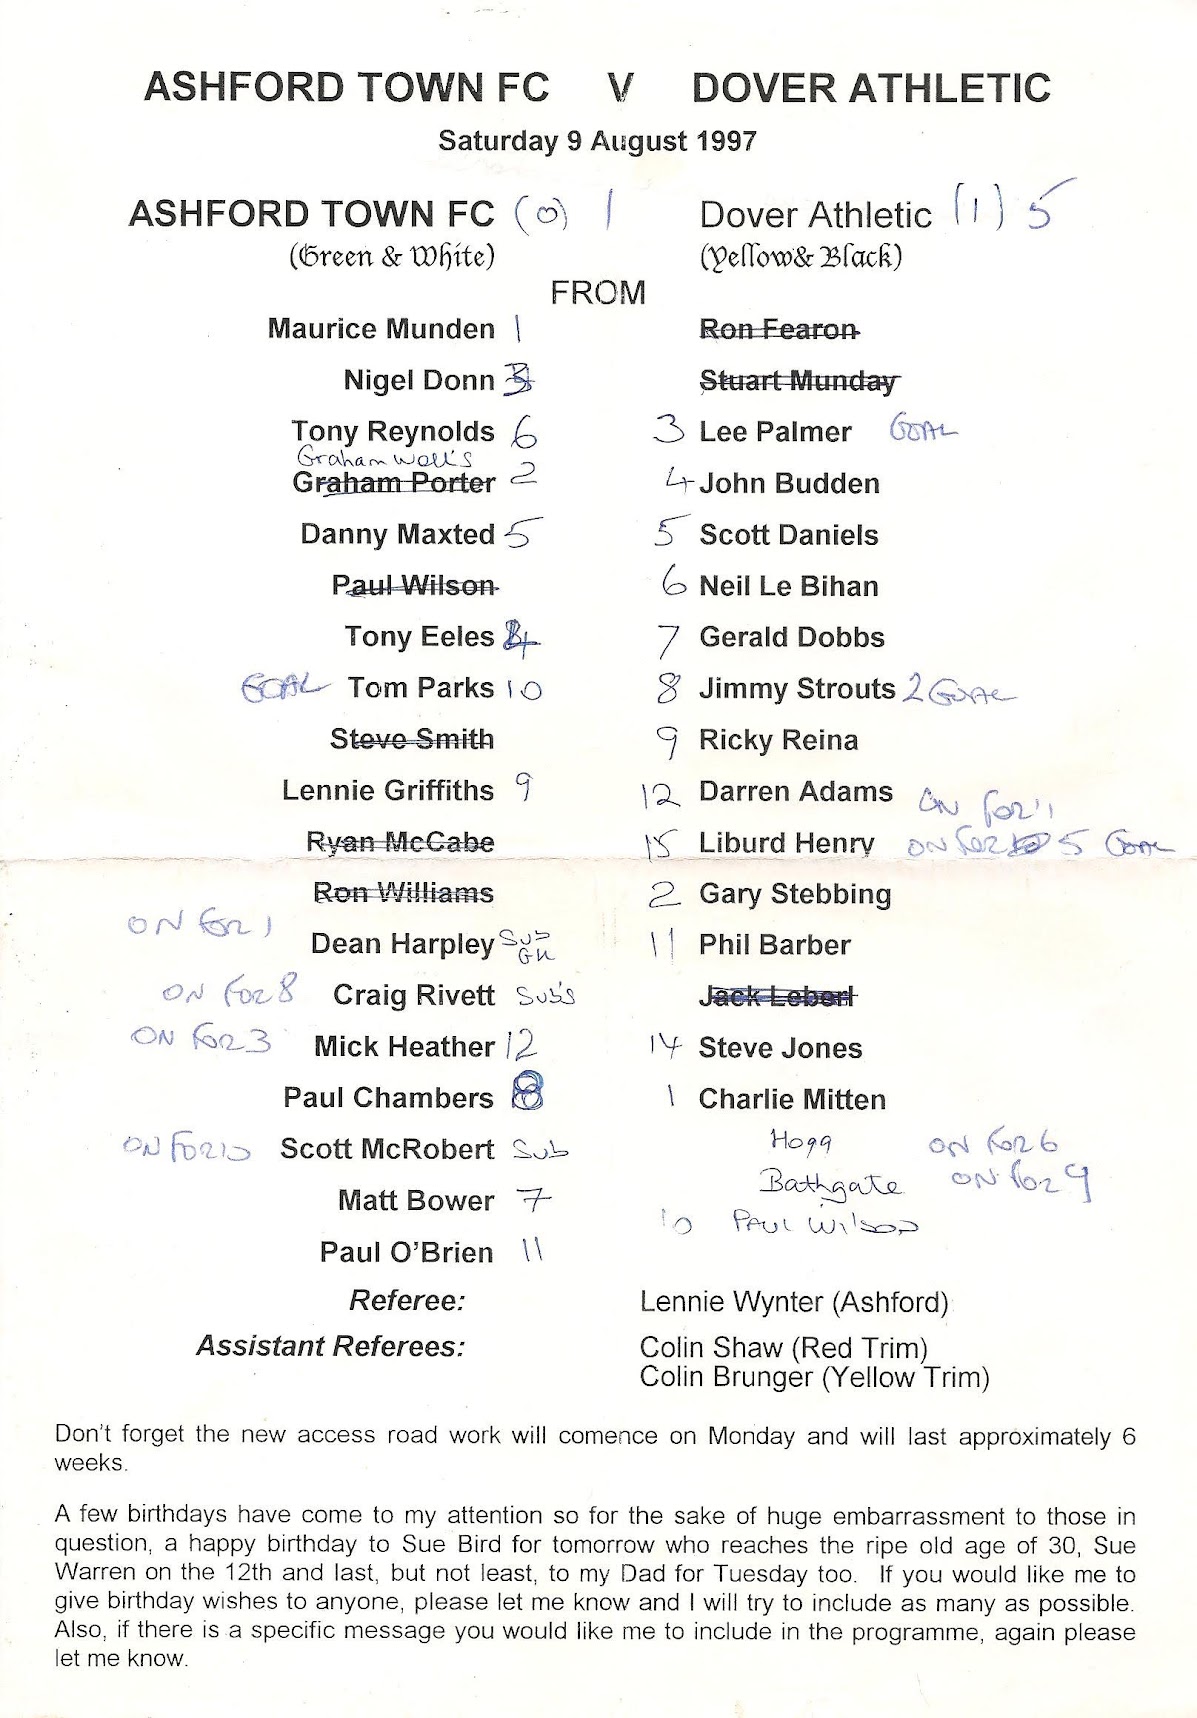 ASHFORD TOWN FC V DOVER ATHLETIC
Saturday 9 August 1997
ASHFORD TOWN FC (0) 1 Dover Athletic (1) 5
(Green & White) (Yellow& Black)
FROM
Maurice Munden 1 Ron Fearon
Nigel Donn 3 Stuart Munday
Tony Reynolds 6 3 Lee Palmer GOAL
Graham Wells
Graham Porter 2 4 John Budden
Danny Maxted 5 5 Scott Daniels
Paul Wilson 6 Neil Le Bihan
Tony Eeles 4 7 Gerald Dobbs
GOAL Tom Parks 10 8 Jimmy Strouts 2 GOAL
Steve Smith 9 Ricky Reina
Lennie Griffiths 9 12 Darren Adams ON FOR 11
Ryan McCabe 15 Liburd Henry ON FOR 5 GOAL
Ron Williams 2 Gary Stebbing
ON FOR 1 Dean Harpley Sub GK 11 Phil Barber
ON FOR 8 Craig Rivett Subs Jack Leberl
ON FOR 3 Mick Heather 12 14 Steve Jones
Paul Chambers 8 1 Charlie Mitten
ON FOR 10 Scott McRobert Sub Hogg ON FOR 6
Matt Bower 7 Bathgate ON FOR 9
10 PAUL WILSON
Paul O'Brien 11
Referee: Lennie Wynter (Ashford)
Assistant Referees: Colin Shaw (Red Trim)
Colin Brunger (Yellow Trim)
Don't forget the new access road work will comence on Monday and will last approximately 6
weeks.
A few birthdays have come to my attention so for the sake of huge embarrassment to those in
question, a happy birthday to Sue Bird for tomorrow who reaches the ripe old age of 30, Sue
Warren on the 12th and last, but not least, to my Dad for Tuesday too. If you would like me to
give birthday wishes to anyone, please let me know and I will try to include as many as possible.
Also, if there is a specific message you would like me to include in the programme, again please
let me know.